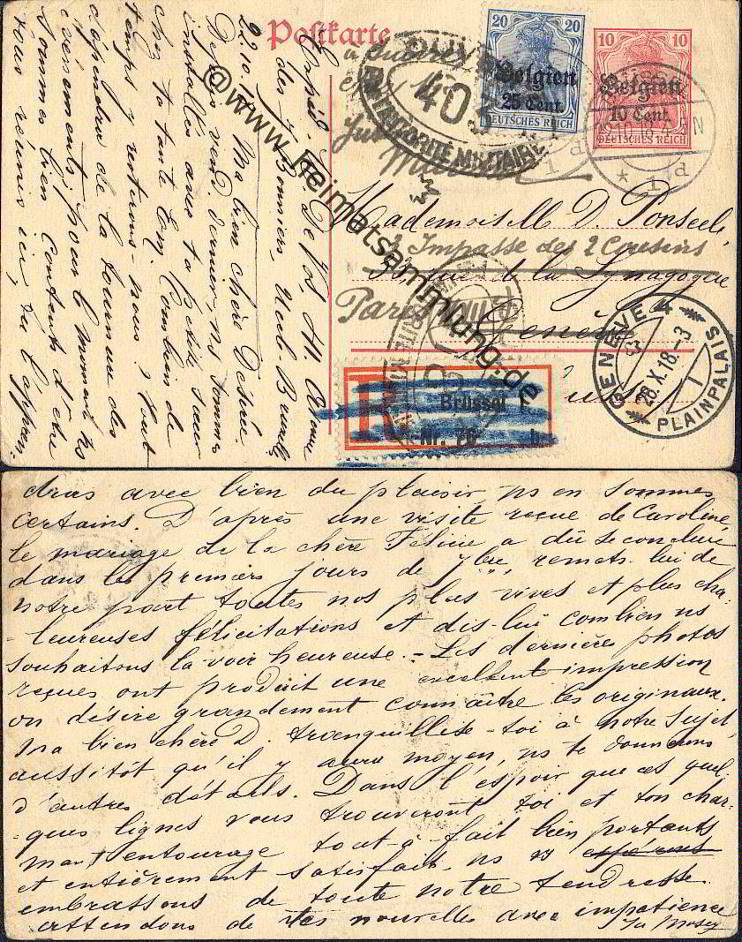 Postkarte
20 20
Belgien
25 Cent.
DEUTSCHES REICH
10 10
Belgien
10 Cent.
DEUTSCHES REICH
403
AUTORITÉ MILITAIRE
Mademoiselle D.
2 Impasse des 2 Cousins
Rue de la Synagogue
Paris
Genève
GENEVE 4
28.X.18.-3
PLAINPALAIS
R
Brüssel
Nr. b
©www.heimatsammlung.de
22.10. Ma bien chère Désirée.
Depuis vend. dernier, ns sommes
installés avec ta petite sœur
chez ta tante Combien de
temps y resterons-nous? tout
dépendra de la tournure des
événements; pour le moment ns
sommes bien contents d'être
tous réunis ici, tu l'appren-
dras avec bien du plaisir, ns en sommes
certains. D'après une visite reçue de Caroline,
le mariage de la chère Félicie a dû se conclure
dans les premiers jours de 7bre, remets-lui de
notre part toutes nos plus vives et plus cha-
-leureuses félicitations et dis-lui combien ns
souhaitons la voir heureuse.- Les dernières photos
reçues ont produit une excellente impression
on désire grandement connaître les originaux.
Ma bien chère D. tranquillise-toi à notre sujet,
aussitôt qu'il y aura moyen, ns te donnerons
d'autres détails. Dans l'espoir que ces quel-
-ques lignes vous trouveront toi et ton char-
mant entourage tout-à-fait bien portants
et entièrement satisfaits, ns vs espérons
embrassons de toute notre tendresse.
attendons de tes nouvelles avec impatience